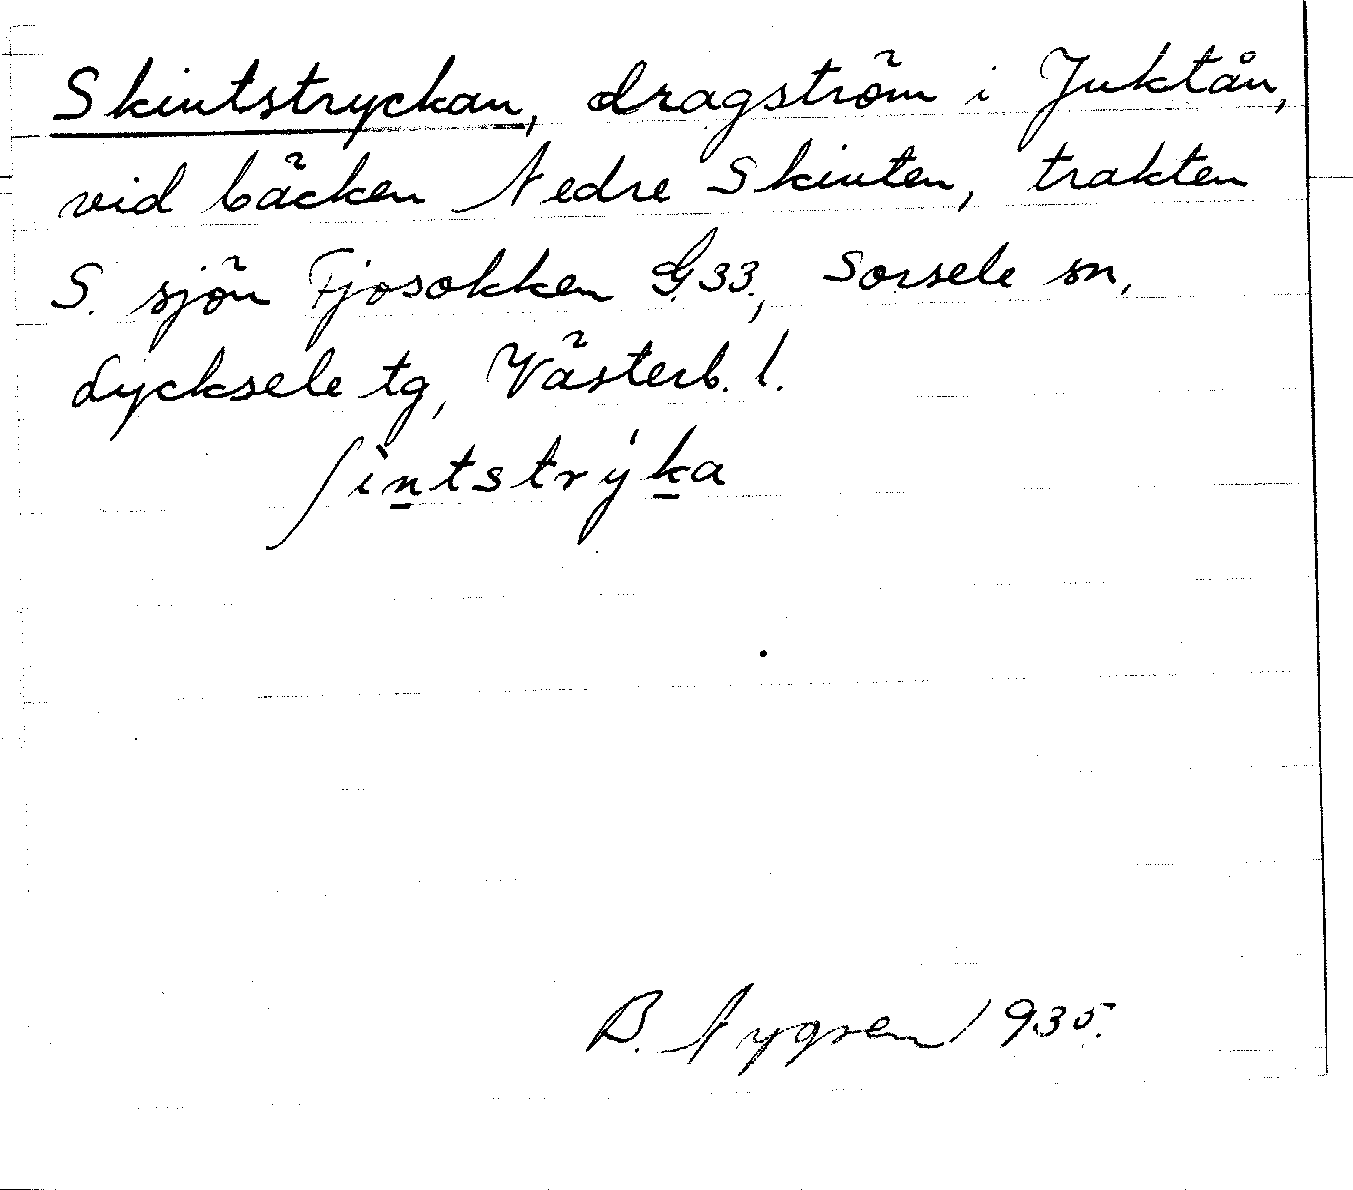 Skintstryckan, dragström i Juktån,
vid bäcken Nedre Skinten, trakten
S. sjön Fjosokken G.33., Sorsele sn,
Lycksele tg, Västerb. l.
ʃintstrýka
B. Nygren 1935.